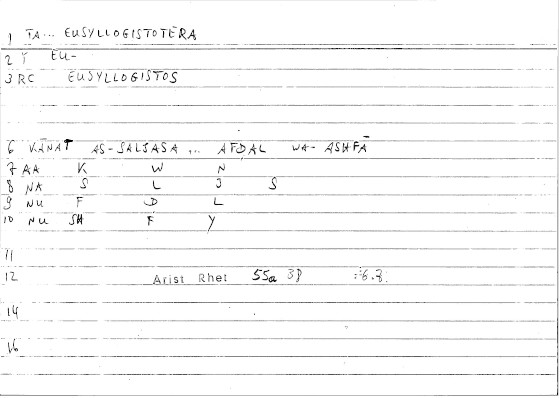 1 TA... EUSYLLOGISTOTERA
2 T EU-
3 RC EUSYLLOGISTOS
6 KĀNAT AS-SALJASA ... AFḌAL WA- ASHFĀ
7 AA K W N
8 NA S L J S
9 NU F D L
10 NU SH F Y
11
12 Arist Rhet 55a 38 :6.8.
14
16